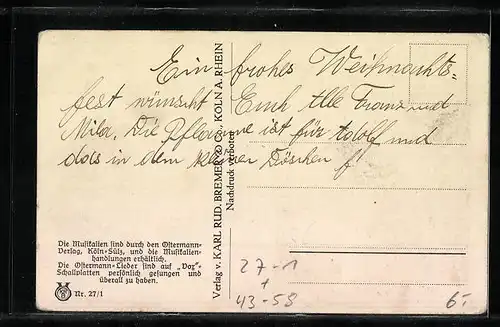 Ein frohes Weihnachts-
fest wünscht Euch Alle Franz und
Mila. Die Pflaume ist für Adolf und
das in dem kleinen Döschen f.
Verlag v. KARL RUD. BREMER & CO., KÖLN A. RHEIN
Nachdruck verboten
Die Musikalien sind durch den Ostermann-
Verlag, Köln-Sülz, und die Musikalien-
handlungen erhältlich.
Die Ostermann-Lieder sind auf „Vox"-
Schallplatten persönlich gesungen und
überall zu haben.
Nr. 27/1
27-1
+
43-58
6.-